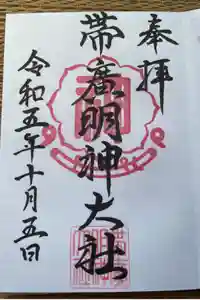 奉拝
帯廣明神大社
令和五年十月五日